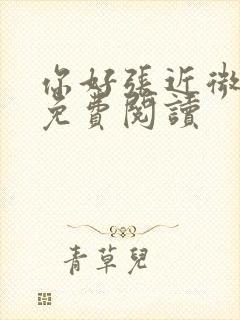 你好張近微
免費閱讀
青草兒